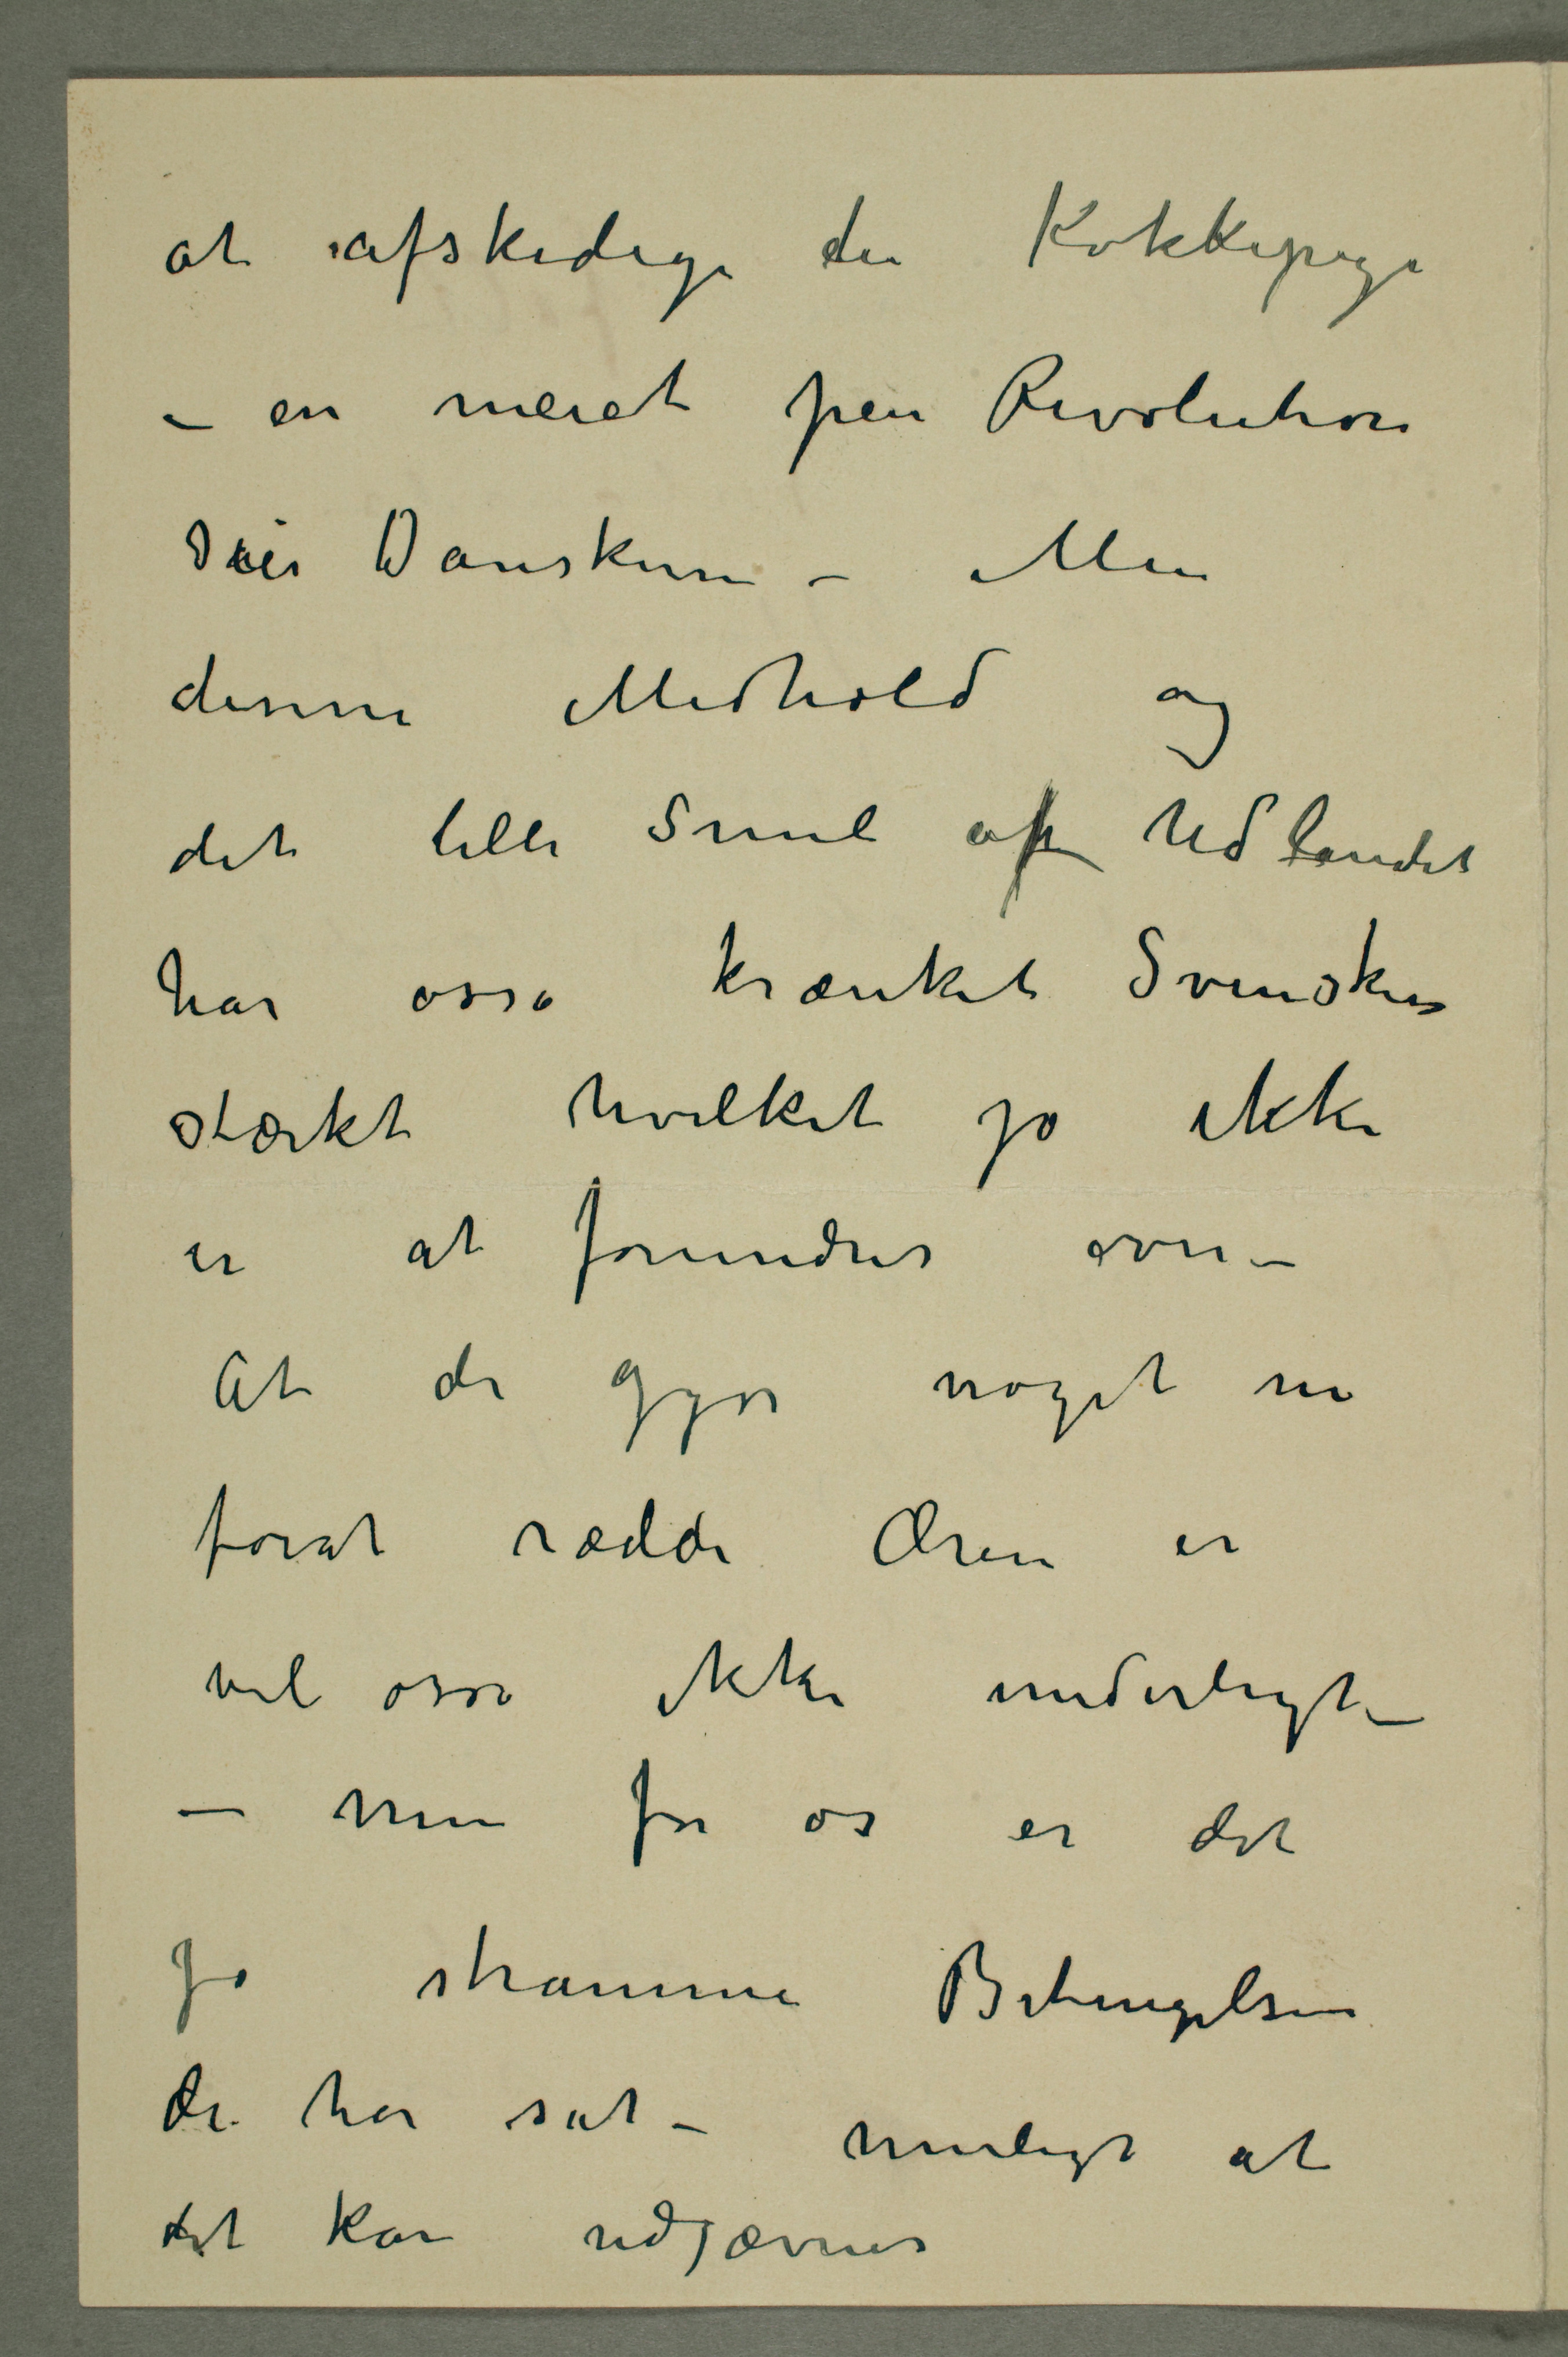 at afskedige en Kokkepige
– en meget pen Revolution
sier Danskerne – Men
denne Medhold og
det lille Smil af Udlandet
har osså krænket Svensken
stærkt hvilket jo ikke
er at forundres over –
At de gjør noget nu
forat rædde Æren er
vel osså ikke underligt –
– men for os er det
jo stramme Betingelser
de har sat – muligt at
det kan udjævnes